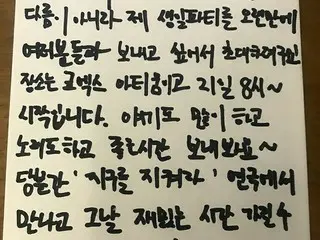 다름이 아니라 제 생일파티를 오랜만에
여러분들과 보내고 싶어서 초대
장소는 코엑스 아티움이고 21일 8시~
시작입니다. 얘기도 많이 하고
노래도하고 좋은시간 보내봐요~
당분간 '지구를 지켜라' 연극에서
만나고 그날 재밌는 시간 가질 수